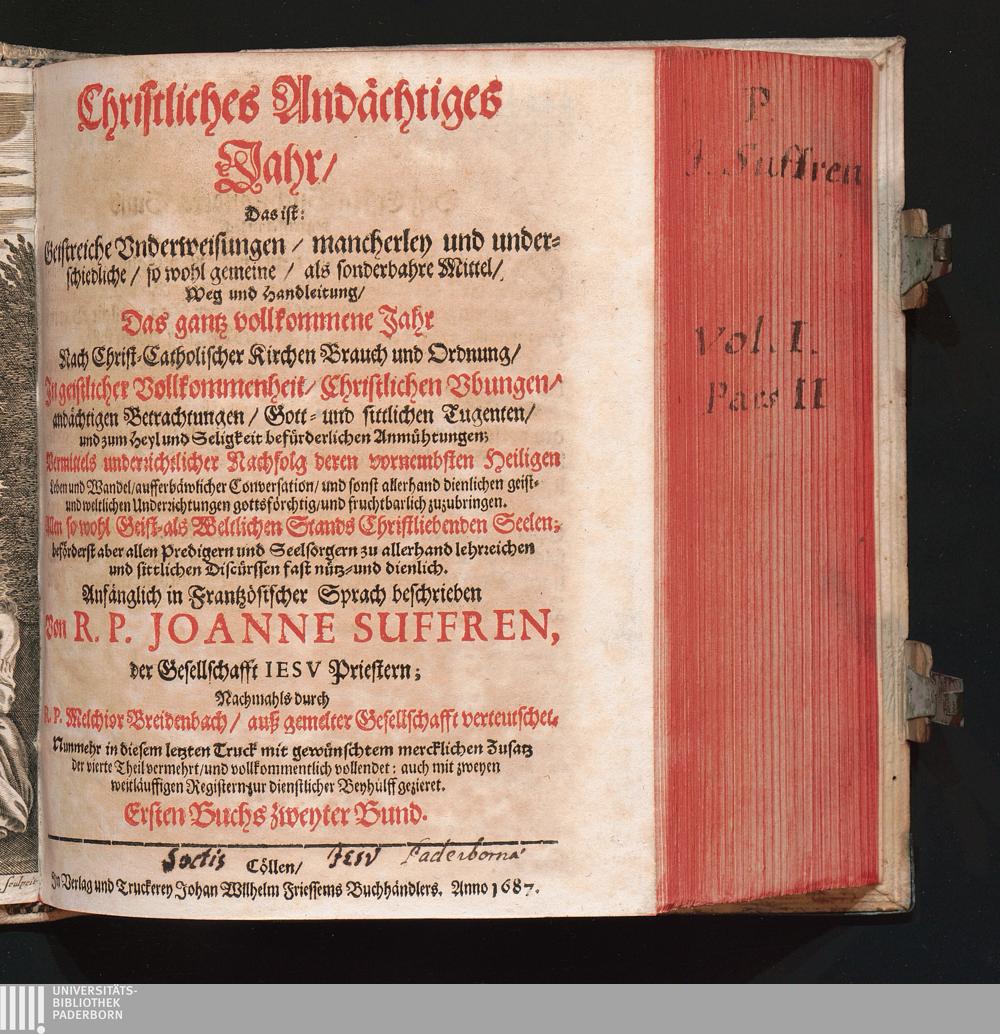 Christliches Andächtiges
Jahr/
Das ist:
Geistreiche Vnderweisungen / mancherley und under-
schiedliche / so wohl gemeine / als sonderbahre Mittel/
Weg und Handleitung/
Das gantz vollkommene Jahr
Nach Christ-Catholischer Kirchen Brauch und Ordnung/
In geistlicher Vollkommenheit/ Christlichen Vbungen/
andächtigen Betrachtungen / Gott- und sittlichen Tugenten/
und zum Heyl und Seligkeit befürderlichen Anmühtungen;
Vermittels underrichtlicher Nachfolg deren vornembsten Heiligen
Leben und Wandel/aufferbäwlicher Conversation/ und sonst allerhand dienlichen geist-
und weltlichen Underrichtungen gottsförchtig/und fruchtbarlich zuzubringen.
Allen so wohl Geist-als Weltlichen Stands Christliebenden Seelen;
beförderst aber allen Predigern und Seelsorgern zu allerhand lehrreichen
und sittlichen Discürssen fast nütz-und dienlich.
Anfänglich in Frantzösischer Sprach beschrieben
Von R. P. JOANNE SUFFREN,
der Gesellschafft IESV Priestern;
Nachmahls durch
R. P. Melchior Breidenbach/ auß gemelter Gesellschafft verteutschet.
Nunmehr in diesem letzten Truck mit gewünschtem mercklichen Zusatz
der vierte Theil vermehrt/und vollkommentlich vollendet: auch mit zweyen
weitläuffigen Registern zur dienstlicher Beyhülff gezieret.
Ersten Buchs zweyter Bund.
Soctis JESV Paderbornæ
Cöllen/
In Verlag und Truckerey Johan Wilhelm Friessems Buchhändlers. Anno 1687.
P.
J. Suffren
Vol. I.
Pars II
sculpsit
UNIVERSITÄTS-
BIBLIOTHEK
PADERBORN